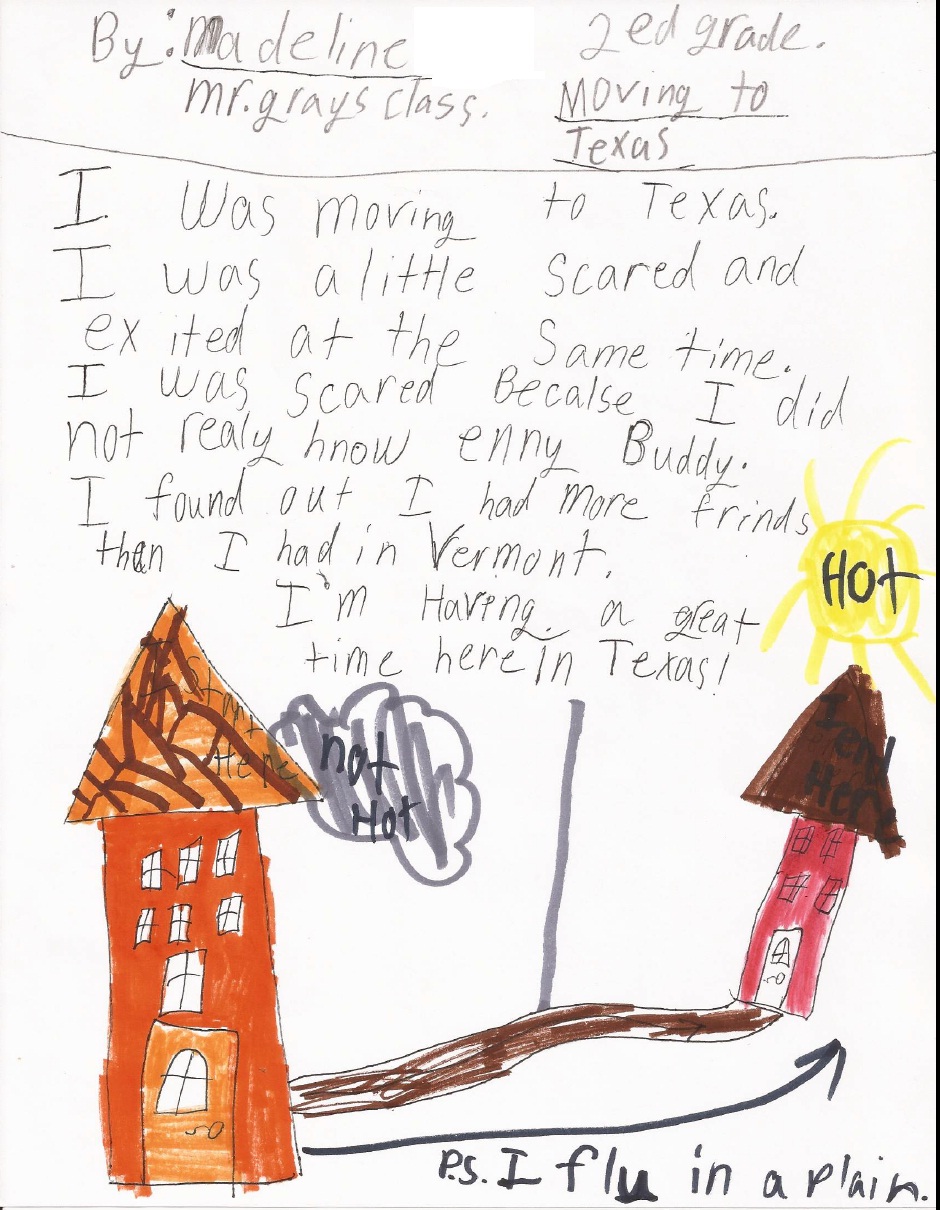 By: Madeline 2ed grade.
mr.grays class. Moving to
Texas
I was moving to Texas.
I was a little scared and
exited at the same time.
I was scared Becalse I did
not realy know enny Buddy.
I found out I had more frinds
then I had in Vermont.
I'm Having a great
time here in Texas!
Hot
I strt
Here
not
Hot
I end
Here
P.S. I flu in a plain.